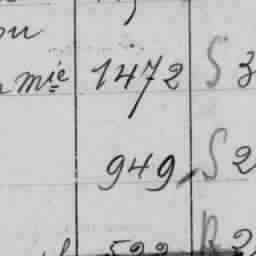 ou
mie 1472 S 3
949 S 2
522 R 2